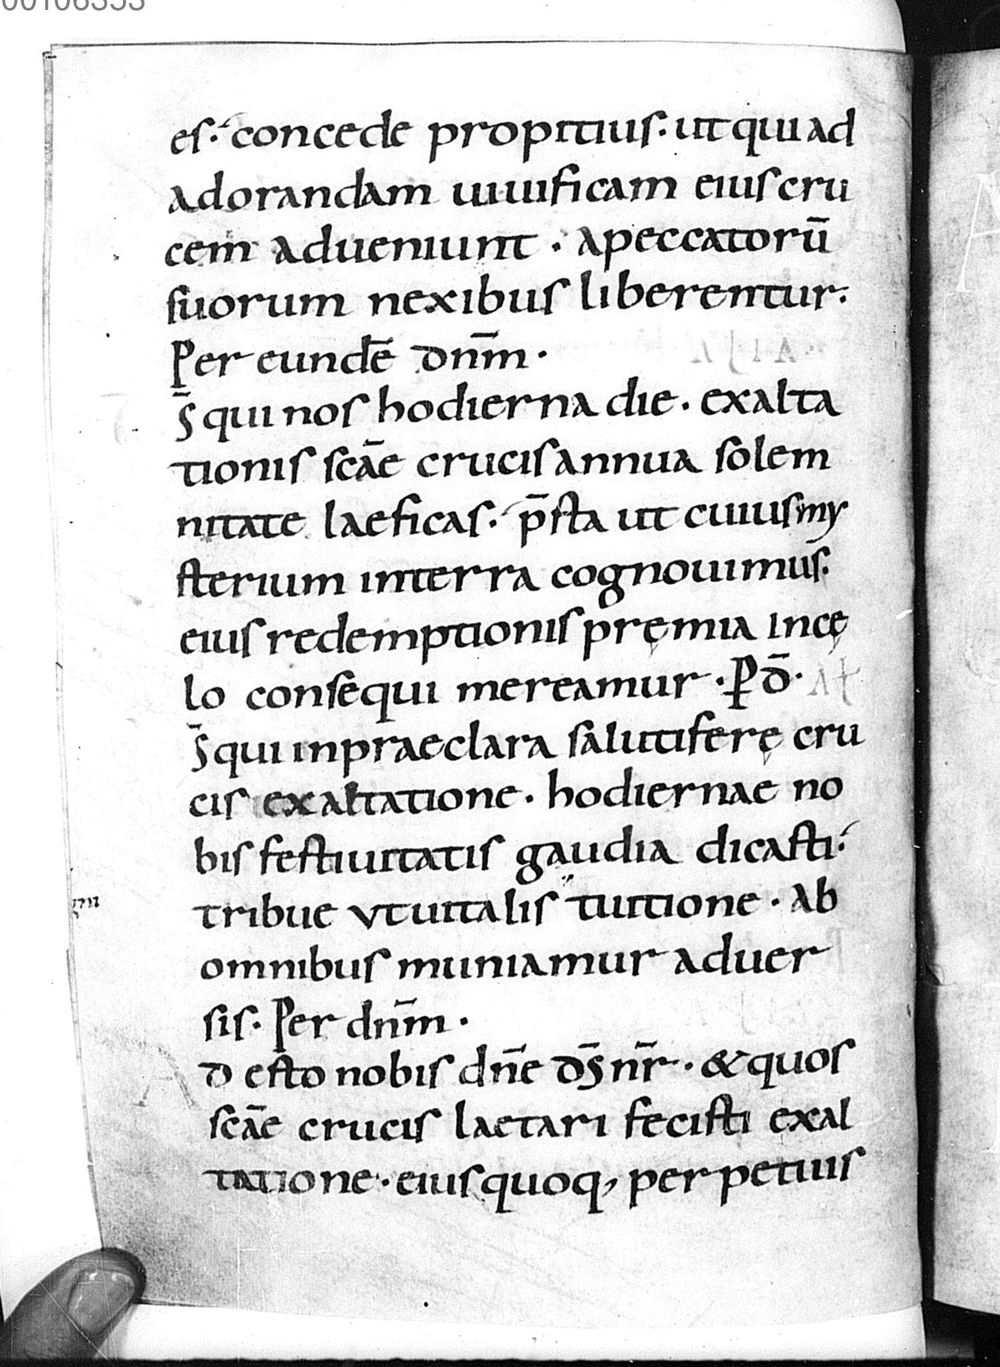 00106353
es· concede propitius· ut qui ad
adorandam uiuificam eius cru
cem adueniunt · apeccatorū
suorum nexibus liberentur·
Per eundē dn̄m ·
S̄ qui nos hodierna die · exalta
tionis scāe crucis annua solem
nitate laeficas· p̄sta ut cuius my
sterium interra cognouimus·
eius redemptionis pręmia incę
lo consequi mereamur · P d̄·
S̄ qui inpraeclara salutiferę cru
cis exaltatione · hodiernae no
bis festiuitatis gaudia dicasti·
tribue ut uitalis tuitione · Ab
omnibus muniamur aduer
sis· Per dn̄m ·
D esto nobis dn̄e ds̄ nr̄ · & quos
scāe crucis laetari fecisti exal
tatione · eius quoq, perpetuis